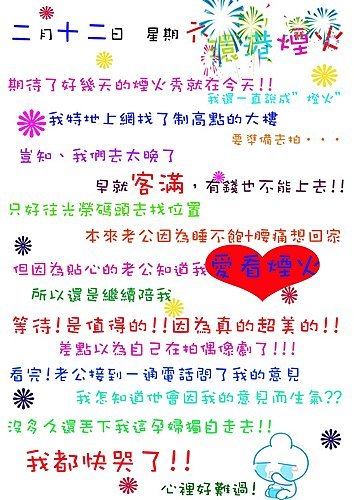 二月十二日 星期六 億港煙火
期待了好幾天的煙火秀就在今天!!
我還一直說成”燈火”
我特地上網找了制高點的大樓
要準備去拍...
豈知、我們去太晚了
早就客滿,有錢也不能上去!!
只好往光榮碼頭去找位置
本來老公因為睡不飽+腰痛想回家
但因為貼心的老公知道我愛看煙火
所以還是繼續陪我
等待!是值得的!!因為真的超美的!!
差點以為自己在拍偶像劇了!!!
看完!老公接到一通電話問了我的意見
我怎知道他會因我的意見而生氣??
沒多久還丟下我這孕婦獨自走去!!
我都快哭了!!
心裡好難過!